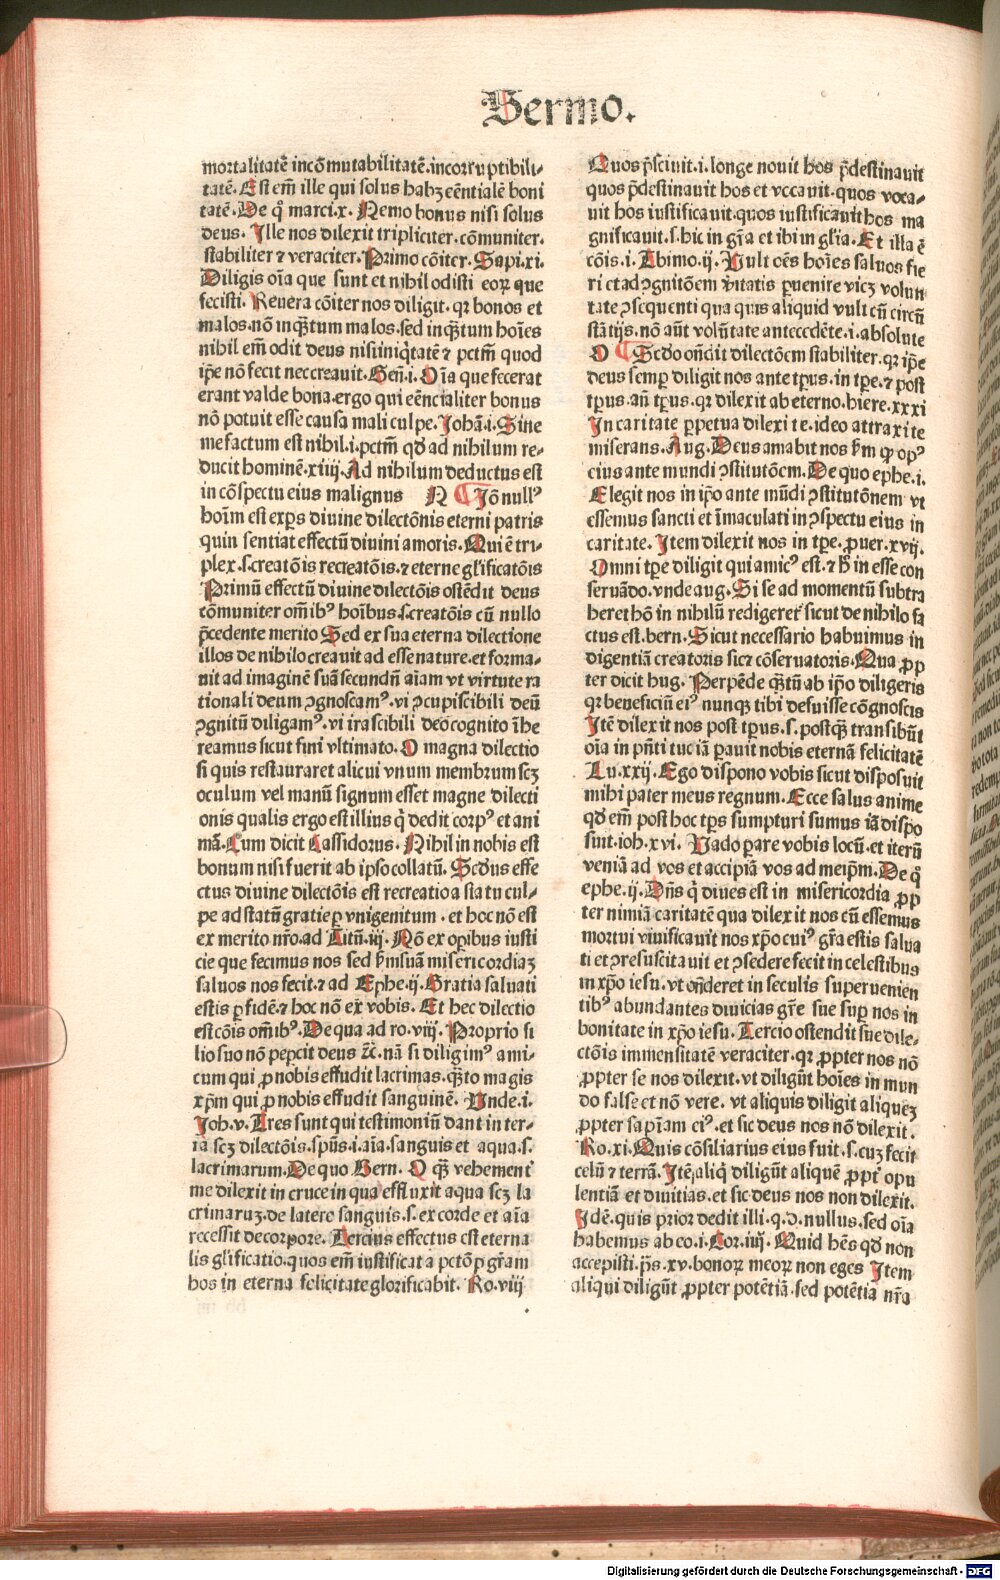 Sermo.
mortalitatē incōmutabilitatē.incorruptibili-
tatē.Est em̄ ille qui solus habꝫ eēntialē boni
tatē.De q̊ marci.x. Nemo bonus nisi solus
deus. Ille nos dilexit tripliciter.cōmuniter.
stabiliter ⁊ veraciter.Primo cōiter.Sapi.xi.
Diligis oīa que sunt et nihil odisti eoꝝ que
fecisti. Reuera cōiter nos diligit. qꝛ bonos et
malos.nō inqꝫtum malos.sed inqꝫtum hoīes
nihil em̄ odit deus nisi iniq̇tatē ⁊ pctm̄ quod
ip̄e nō fecit nec creauit.Gen̄.i.Oīa que fecerat
erant valde bona.ergo qui eēncialiter bonus
nō potuit esse causa mali culpe.Johā.i.Sine
me factum est nihil.i.pctm̄ qd̄ ad nihilum re-
ducit hominē.xiiij.Ad nihilum deductus est
in cōspectu eius malignus N ¶ Jō nullꝰ
hoīm est expꝑs diuine dilectōnis eterni patris
quin sentiat effectū diuini amoris.Qui ē tri-
plex.s.creatōis recreatōis.⁊ eterne gl̄ificatōis
Primū effectū diuine dilectōis ostēdit deus
cōmuniter om̄ibꝰ hoībus.s.creatōis cū nullo
p̄cedente merito Sed ex sua eterna dilectione
illos de nihilo creauit ad esse nature.et forma-
uit ad imaginē suā secundū aīam vt virtute ra
tionali deum ꝯgnoscamꝰ.vi ꝯcupiscibili deū
ꝯgnitū diligamꝰ.vi irascibili deo cognito īhe
reamus sicut fini vltimato.O magna dilectio
si quis restauraret alicui vnum membrum scꝫ
oculum vel manū signum esset magne dilecti
onis qualis ergo est illius q̇ dedit corpꝰ et ani
mā.Cum dicit Cassidorus.Nihil in nobis est
bonum nisi fuerit ab ipso collatū.Scd̄us effe
ctus diuine dilectōis est recreatio a statu cul-
pe ad statū gratie per vnigenitum.et hoc nō est
ex merito nr̄o.ad Titū.iij.Nō ex oꝑibus iusti
cie que fecimus nos sed ẜm suā misericordiaꝫ
saluos nos fecit.⁊ ad Ephe.ij.Gratia saluati
estis ꝑ fidē.⁊ hoc nō ex vobis. Et hec dilectio
est cōis om̄ibꝰ.De qua ad ro.viij. Proprio fi
lio suo nō peꝑcit deus ⁊c̄.nā si diligimꝰ ami-
cum qui ꝓ nobis effudit lacrimas.qꝫto magis
xp̄m qui ꝓ nobis effudit sanguinē. Vnde.i.
Joh.v.Tres sunt qui testimoniū dant in ter-
ra scꝫ dilectōis.spūs.i.aīa.sanguis et aqua.s.
lacrimarum.De quo Bern. O qꝫ vehement
me dilexit in cruce in qua effluxit aqua scꝫ la
crimaruꝫ.de latere sanguis.s.ex corde et aīa
recessit de corpore. Tercius effectus est eterna
lis gl̄ificatio.quos em̄ iustificat a pctō ꝑ gr̄am
hos in eterna felicitate glorificabit. Ro.viij
Quos p̄sciuit.i.longe nouit hos p̄destinauit
quos p̄destinauit hos et vocauit.quos voca-
uit hos iustificauit.quos iustificauit hos ma
gnificauit.s.hic in gr̄a et ibi in gl̄ia.Et illa ē
cōis.i.Thimo.ij.Uult oēs hoīes saluos fie
ri et ad ꝯgnitōem v̄itatis peruenire vicꝫ volun
tate ꝯsequenti qua quis aliquid vult cū circū
stātijs.nō aūt volūtate antecedēte.i.absolute
O ¶ Scd̄o on̄dit dilectōem stabiliter.qꝛ ip̄e
deus semꝑ diligit nos ante tp̄us.in tp̄e.⁊ post
tp̄us.an̄ tp̄us.qꝛ dilexit ab eterno.hiere.xxxi
In caritate ꝑpetua dilexi te.ideo attraxi te
miserans.Aug.Deus amabit nos ẜm ꝙ opꝰ
eius ante mundi ꝯstitutōem.De quo ephe.i.
Elegit nos in ip̄o ante mūdi ꝯstitutōnem vt
essemus sancti et īmaculati in ꝯspectu eius in
caritate. Item dilexit nos in tp̄e.ꝓuer.xvij.
Omni tp̄e diligit qui amicꝰ est.⁊ h̄ in esse con
seruādo.vnde aug.Si se ad momentū subtra
heret hō in nihilū redigeret sicut de nihilo fa
ctus est.bern.Sicut necessario habuimus in
digentiā creatoris sicꝛ cōseruatoris.Qua ꝓp
ter dicit hug. Perpēde qꝫtū ab ip̄o diligeris
qꝛ beneficiū eiꝰ nunqꝫ tibi defuisse cōgnoscis
Itē dilexit nos post tp̄us.s.postqꝫ transibūt
oīa in pn̄ti tūc iā ꝑauit nobis eternā felicitatē
Lu.xxij.Ego dispono vobis sicut disposuit
mihi pater meus regnum.Ecce salus anime
qd̄ em̄ post hoc tp̄s sumpturi sumus iā dispo
sunt.ioh.xvi. Uado parare vobis locū.et iterū
veniā ad vos et accipiā vos ad meip̄m.De q̊
ephe.ij.Dn̄s q̇ diues est in misericordia ꝓp
ter nimiā caritatē qua dilexit nos cū essemus
mortui viuificauit nos xp̄o cuiꝰ gr̄a estis salua
ti et ꝯresuscitauit et ꝯsedere fecit in celestibus
in xp̄o iesu.vt on̄deret in seculis superuenien
tibꝰ abundantes diuicias gr̄e sue suꝑ nos in
bonitate in xp̄o iesu.Tercio ostendit sue dile-
ctōis immensitatē veraciter.qꝛ ꝓpter nos nō
ꝓpter se nos dilexit.vt diligūt hoīes in mun
do false et nō vere. vt aliquis diligit aliqueꝫ
ꝓpter sapīam eiꝰ.et sic deus nos nō dilexit.
Ro.xi.Quis cōsiliarius eius fuit.s.cuꝫ fecit
celū ⁊ terrā.Itē aliq̇ diligūt aliquē ꝓpt̄ opu
lentiā et diuitias.et sic deus nos non dilexit.
Idē.quis prior dedit illi.q.d.nullus.sed oīa
habemus ab eo.i.Cor.iiij. Quid hēs qd̄ non
accepisti.ps̄.xv.bonoꝝ meoꝝ non eges Item
aliqui diligūt ꝓpter potētiā.sed potētia nr̄a
Digitalisierung gefördert durch die Deutsche Forschungsgemeinschaft - DFG